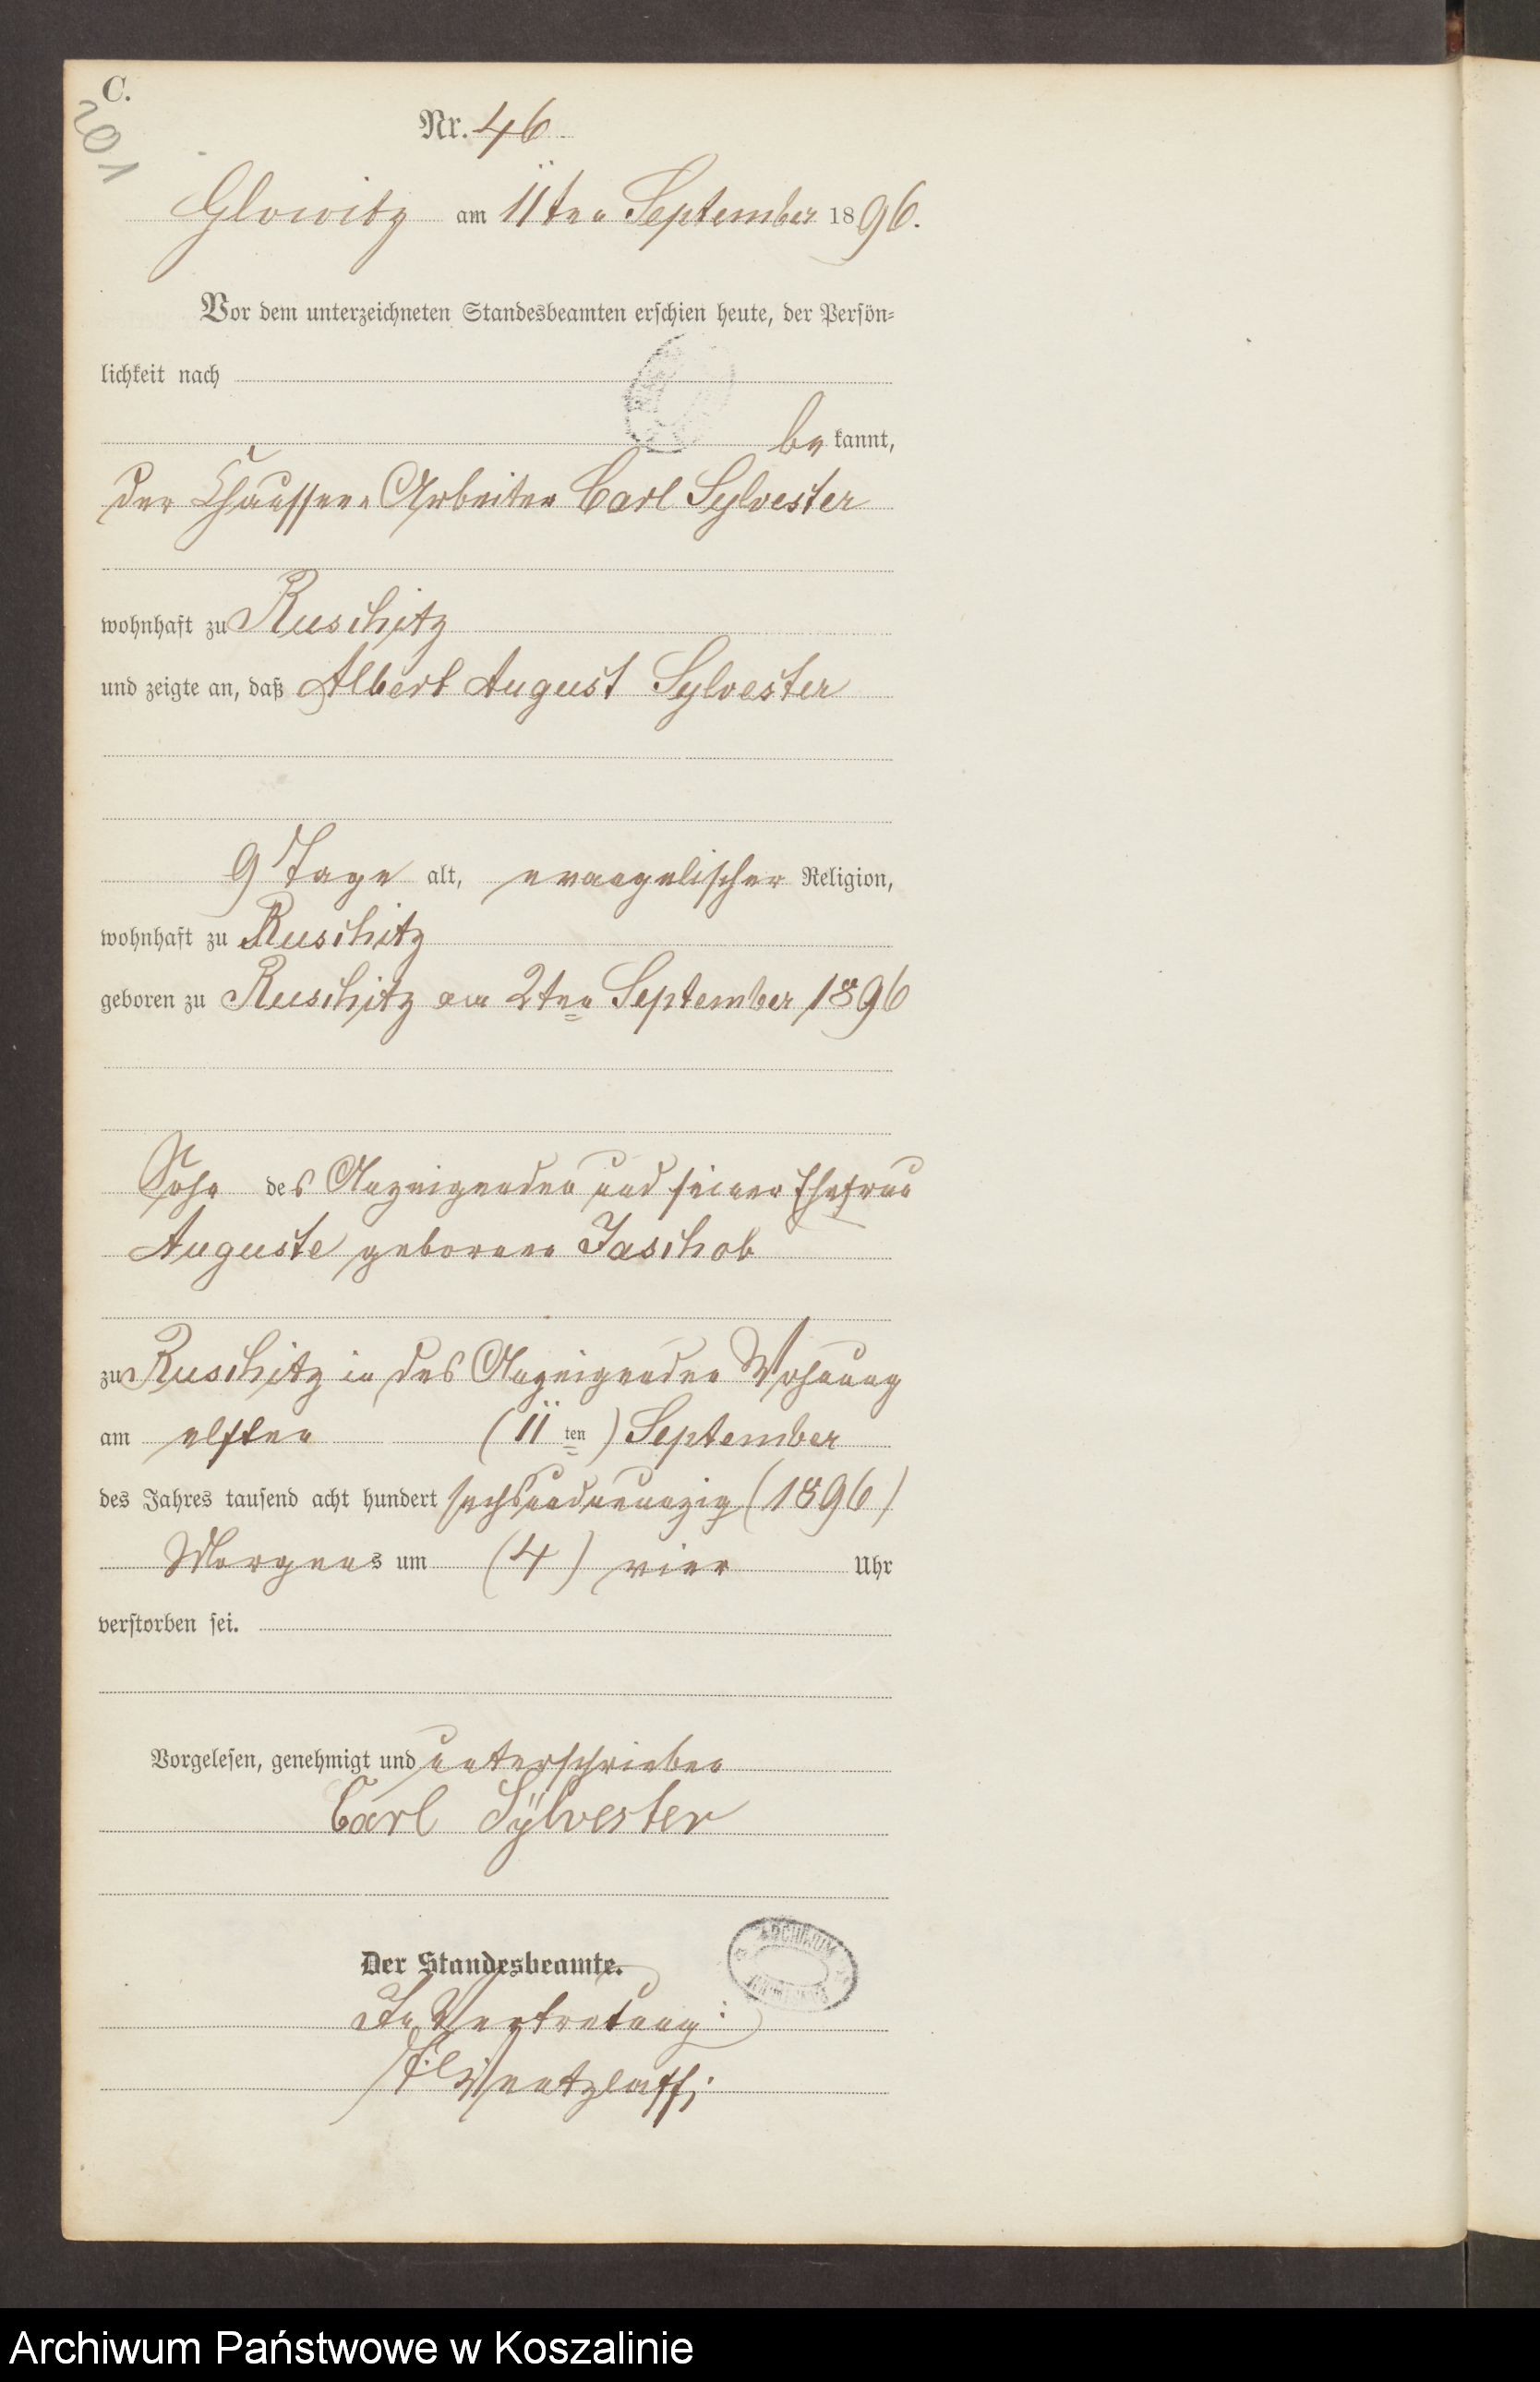 C.
201
Nr. 46
Glowitz am 11ten September 1896.
Vor dem unterzeichneten Standesbeamten erschien heute, der Persön-
lichkeit nach
bekannt,
der Chaussee-Arbeiter Carl Sylvester
wohnhaft zu Ruschitz
und zeigte an, daß Albert August Sylvester
9 Tage alt, evangelischer Religion,
wohnhaft zu Ruschitz
geboren zu Ruschitz am 2ten September 1896
Sohn des Anzeigenden und seiner Ehefrau
Auguste geborene Jaschob
zu Ruschitz in des Anzeigenden Wohnung
am elften (11ten) September
des Jahres tausend acht hundert sechsundneunzig (1896)
Morgens um (4) vier Uhr
verstorben sei.
Vorgelesen, genehmigt und unterschrieben
Carl Sÿlvester
Der Standesbeamte.
In Vertretung:
Wentzlaff.
ARCHIWUM
Archiwum Państwowe w Koszalinie